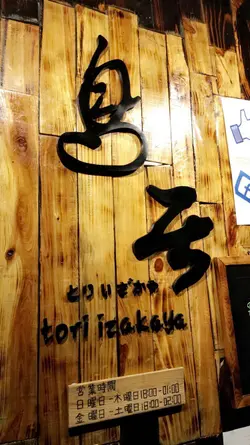 鳥
とりいざかや
tori izakaya
営業時間
日曜日-木曜日18:00-01:00
金曜日-土曜日18:00-02:00